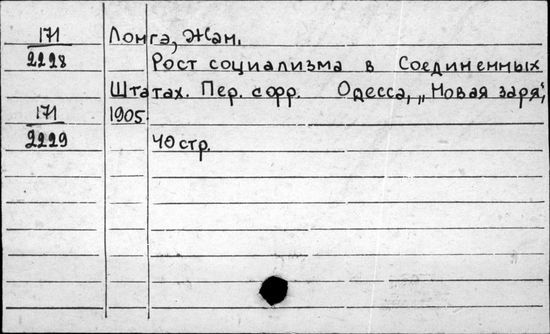 171 Лонгэ, Жан.
2228 Рост социализма в Соединенных
Штатах. Пер. с фр. Одесса, „Новая заря",
171 1905.
2229 40 стр.